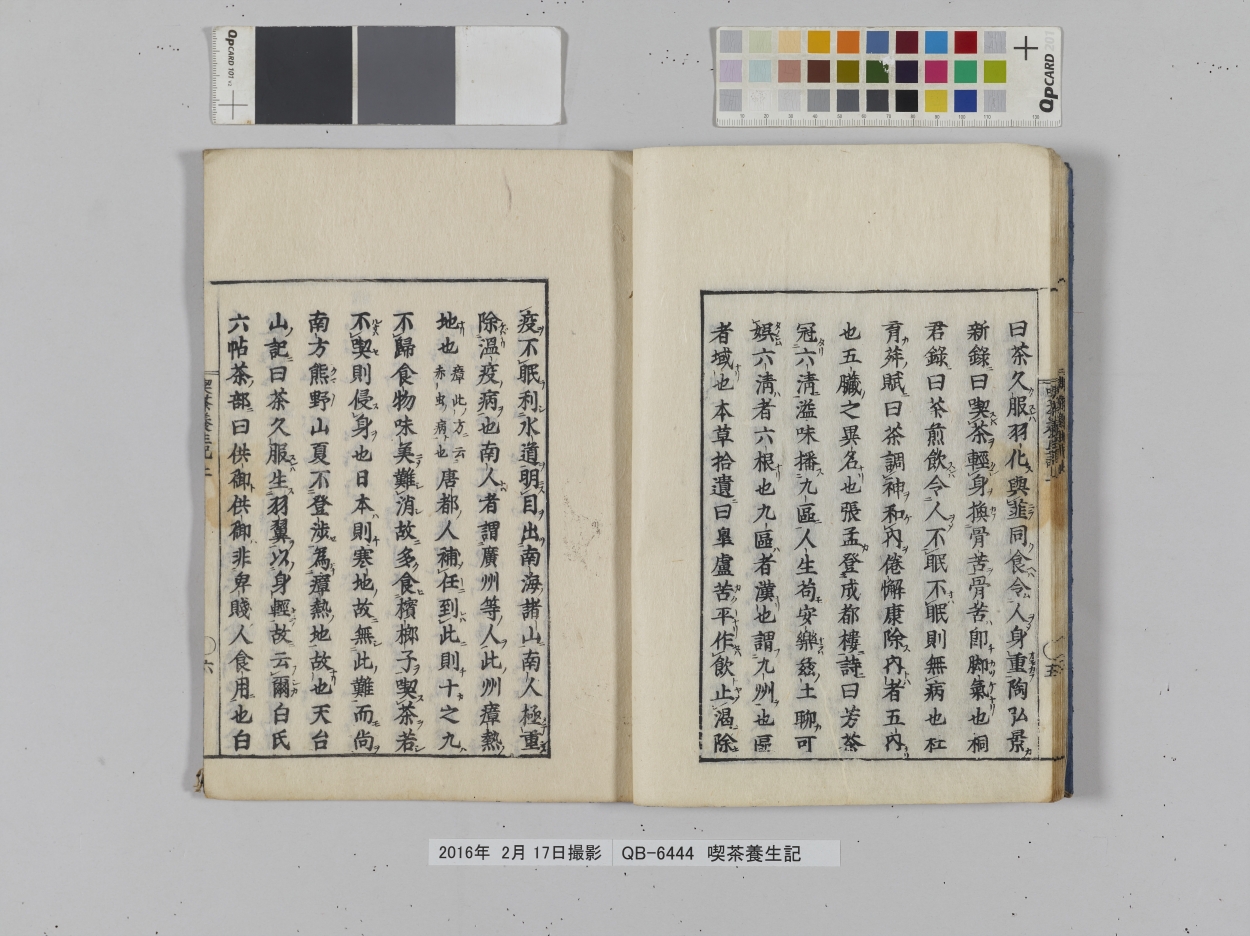 QpCARD 101 v3
QpCARD 201
曰茶久服羽化與韮同食令人身重陶弘景
新錄曰喫茶輕身換骨苦骨苦即脚氣也桐
君錄曰茶煎飲令人不眠不眠則無病也杜
育荈賦曰茶調神和內倦懈康除內者五內
也五臟之異名也張孟登成都樓詩曰芳茶
冠六淸溢味播九區人生苟安樂玆土聊可
娯六淸者六根也九區者漢也謂九州也區
者域也本草拾遺曰皐盧苦平作飮止渴除
五
疫不眠利水道明目出南海諸山南人極重
除溫疫病也南人者謂廣州等人此州瘴熱
地也瘴此方云赤虫病也唐都人補任到此則十之九
不歸食物味美難消故多食檳榔子喫茶若
不喫則侵身也日本則寒地故無此難而尚
南方熊野山夏不登涉為瘴熱地故也天台
山記曰茶久服生羽翼以身輕故云爾白氏
六帖茶部曰供御供御非卑賤人食用也白
喫茶養生記上
六
2016年 2月 17日撮影 QB-6444 喫茶養生記